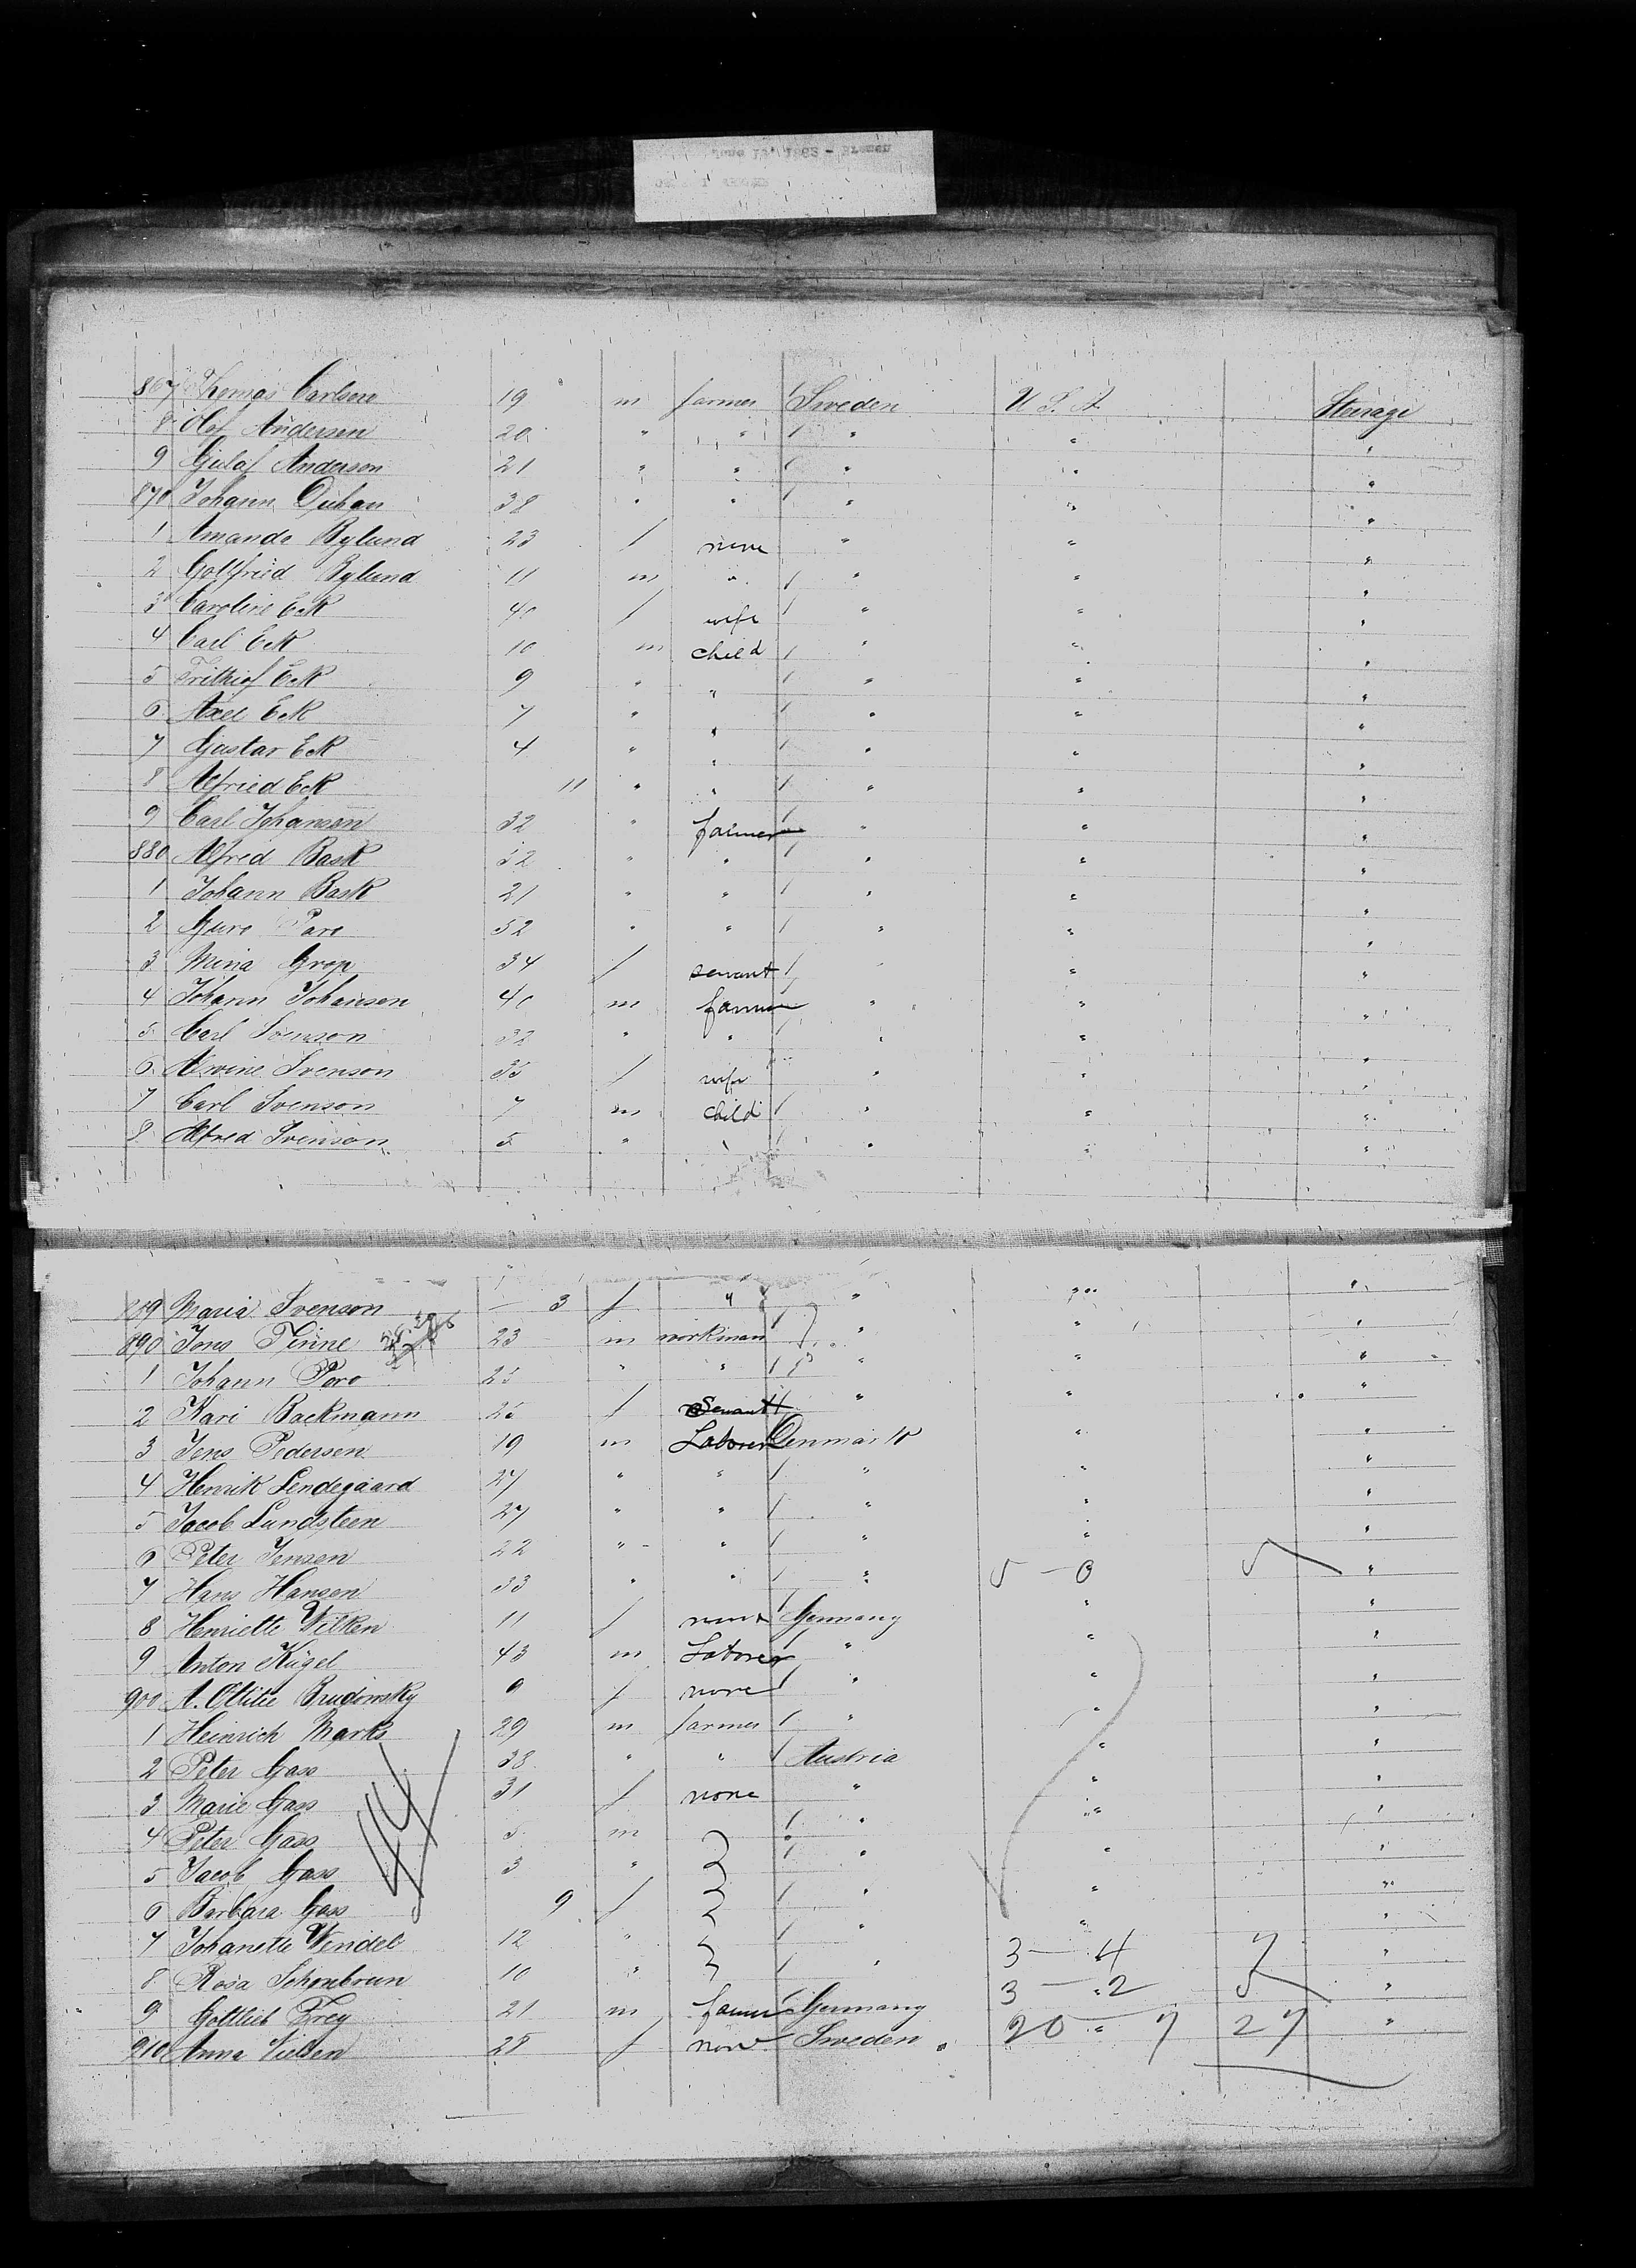 1883 - Bremen
867 Thomas Carlsen 19 m farmer Sweden U.S.A. Steerage
8 Olof Andersen 20 " " " " "
9 Gulof Anderson 21 " " " " "
870 Johann Duhan 38 " " " " "
1 Amanda Bylund 23 f none " " "
2 Gottfried Bylund 11 m " " " "
3 Caroline Eck 40 f wife " " "
4 Carl Eck 10 m child " " "
5 Frithiof Eck 9 " " " " "
6 Axel Eck 7 " " " " "
7 Gustav Eck 4 " " " " "
8 Alfried Eck 11 " " " " "
9 Carl Johanson 32 " farmer " " "
880 Alfred Bask 52 " " " " "
1 Johann Bask 21 " " " " "
2 Pare 52 " " " " "
3 Mina Grop 34 f servant " " "
4 Johann Johansen 40 m farmer " " "
5 Carl Svenson 32 " " " " "
6 Alwine Svenson 35 f wife " " "
7 Carl Svenson 7 m child " " "
8 Alfred Svenson 5 " " " " "
889 Maria Svenson 3 f " " " "
890 Jons Tinne 23 m workman " " "
1 Johann Poro 25 " " " " "
2 Kari Backmann 25 f Servant " " "
3 Jens Pedersen 19 m Laborer Denmark " "
4 Henrik Lendegaard 27 " " " " "
5 Jacob Lundsteen 27 " " " " "
6 Peter Jensen 22 " " " " "
7 Hans Hansen 33 " " " 5 - 0 5 "
8 Henriette Wilken 11 f none Germany " "
9 Anton Kügel 43 m Laborer " " "
900 A. Ottilie Brudowsky 9 f none " " "
1 Heinrich Marks 29 m farmer " " "
2 Peter Gass 38 " " Austria " "
3 Marie Gass 31 f none " " "
4 Peter Gass 5 m " " "
5 Jacob Gass 3 " " " "
6 Barbara Gass 9 f " " "
7 Johanette Wendel 12 " " 3 - 4 7 "
8 Rosa Schonbrun 10 " " 3 - 2 5 "
9 Gottlieb Frey 21 m farmer Germany 20 - 7 27 "
910 Anna 28 f none Sweden "